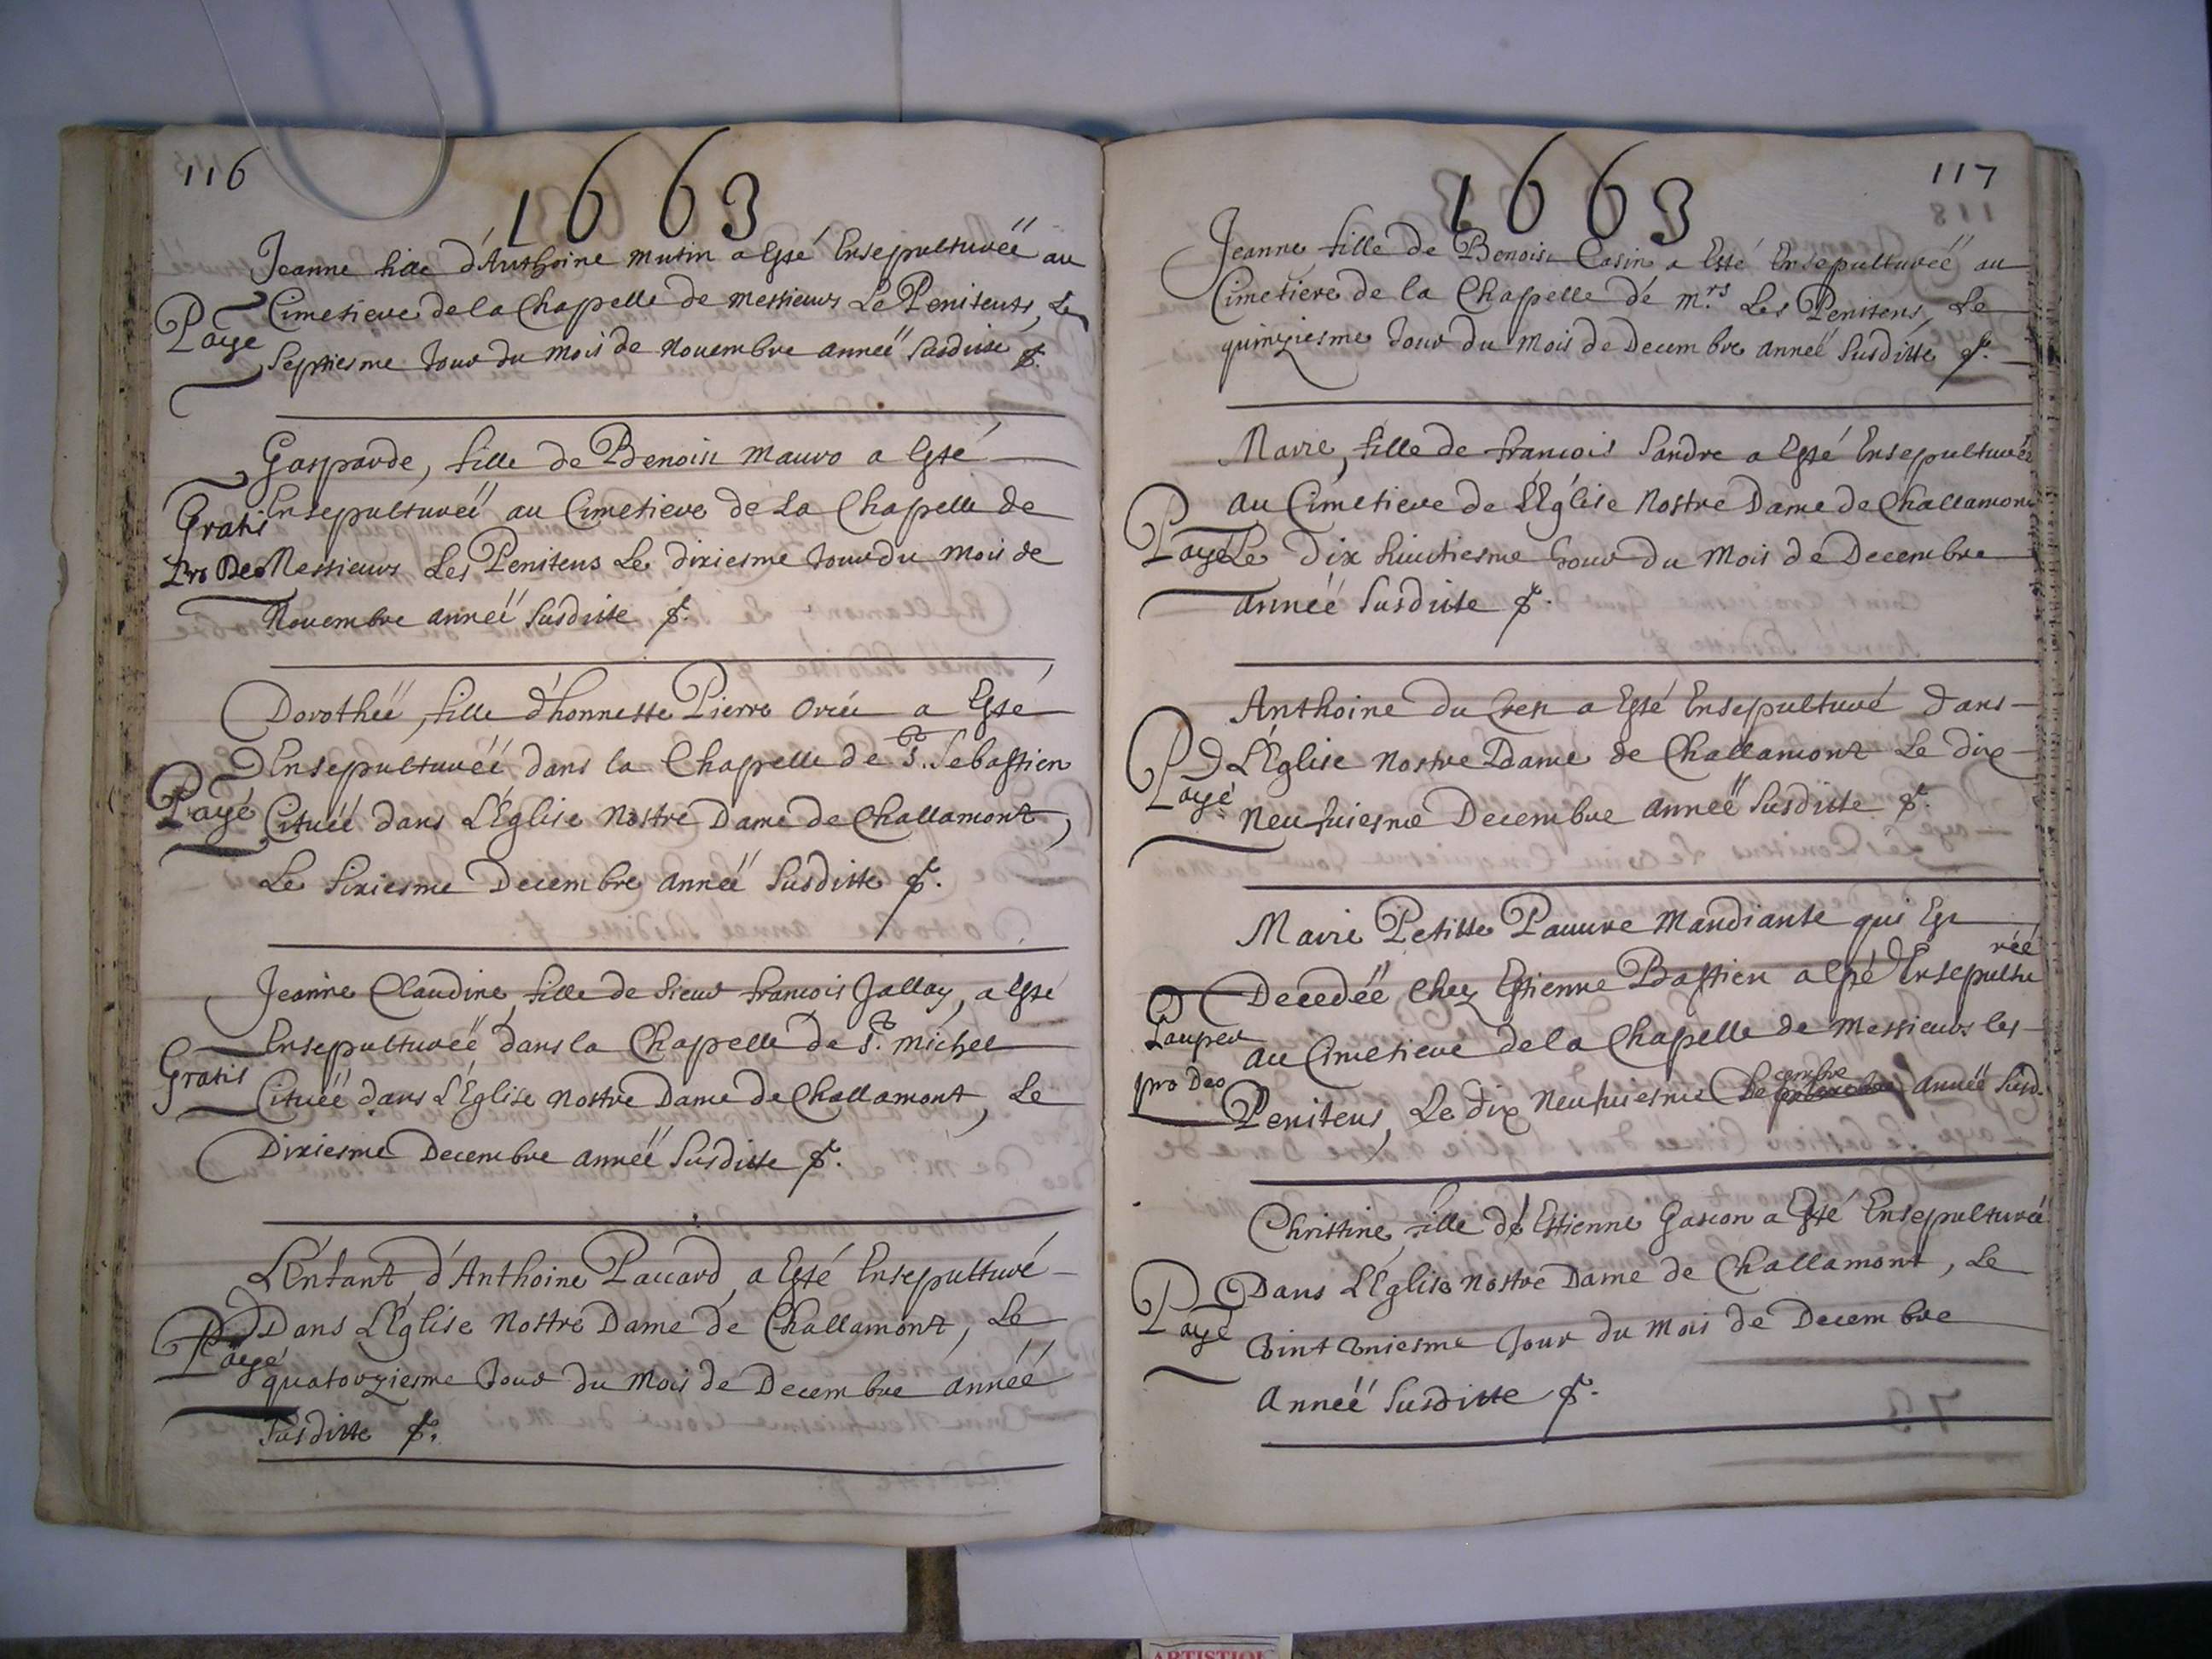 116
1663
Jeanne fille d'Anthoine Mutin a Esté Ensepulturéé au
Cimetiere de la Chapelle de Messieurs Le Penitents, Le
Paye
Septiesme Jour du Mois de Novembre année susditte
Gasparde, fille de Benoist Mauro a Esté
Ensepulturéé au Cimetiere de La Chapelle de
Gratis
Pro Deo Messieurs Les Penitens Le dixiesme Jour du Mois de
Novembre année susditte
Dorothéé, fille d'honneste Pierre a Esté
Ensepulturéé dans la Chapelle de St. Sebastien
Payé Cituéé dans L'Eglise Nostre Dame de Challamont,
Le Sixiesme Decembre année Susditte
Jeanne Claudine, fille de Sieur francois Jallay, a Esté
Ensepulturéé dans la Chapelle de St. Michel
Gratis
Cituéé dans L'Eglise Nostre Dame de Challamont, Le
Dixiesme Decembre année Susditte
L'Enfant d'Anthoine Paccard, a Esté Ensepulturé
Dans L'Eglise Nostre Dame de Challamont, Le
Payé
quatorziesme Jour du Mois de Decembre année
Susditte
1663
117
Jeanne fille de Benoist Casin a Esté Ensepulturéé au
Cimetiere de la Chapelle de Mrs Les Penitens, Le
quinziesme Jour du Mois de Decembre année Susditte
Marie, fille de francois Sandre a Esté Ensepulturéé
au Cimetiere de L'Eglise Nostre Dame de Challamont
Payé Le dix huictiesme Jour du Mois de Decembre
année Susditte
Anthoine du a Esté Ensepulturé dans
L'Eglise Nostre Dame de Challamont Le dix
Payé
Neufuiesme Decembre année Susditte
Marie Petitte Pauure Mandiante qui Est
Decedéé chez Estienne Bastien a Esté Ensepultu
réé
Pauper
au Cimetiere de la Chapelle de Messieurs les
pro Deo
Penitens, Le dix Neufuiesme Decembre année Susd.
Christine, fille de Estienne Gascon a Esté Ensepulturéé
Dans L'Eglise Nostre Dame de Challamont, Le
Payé
Vint Vniesme Jour du Mois de Decembre
Année Susditte